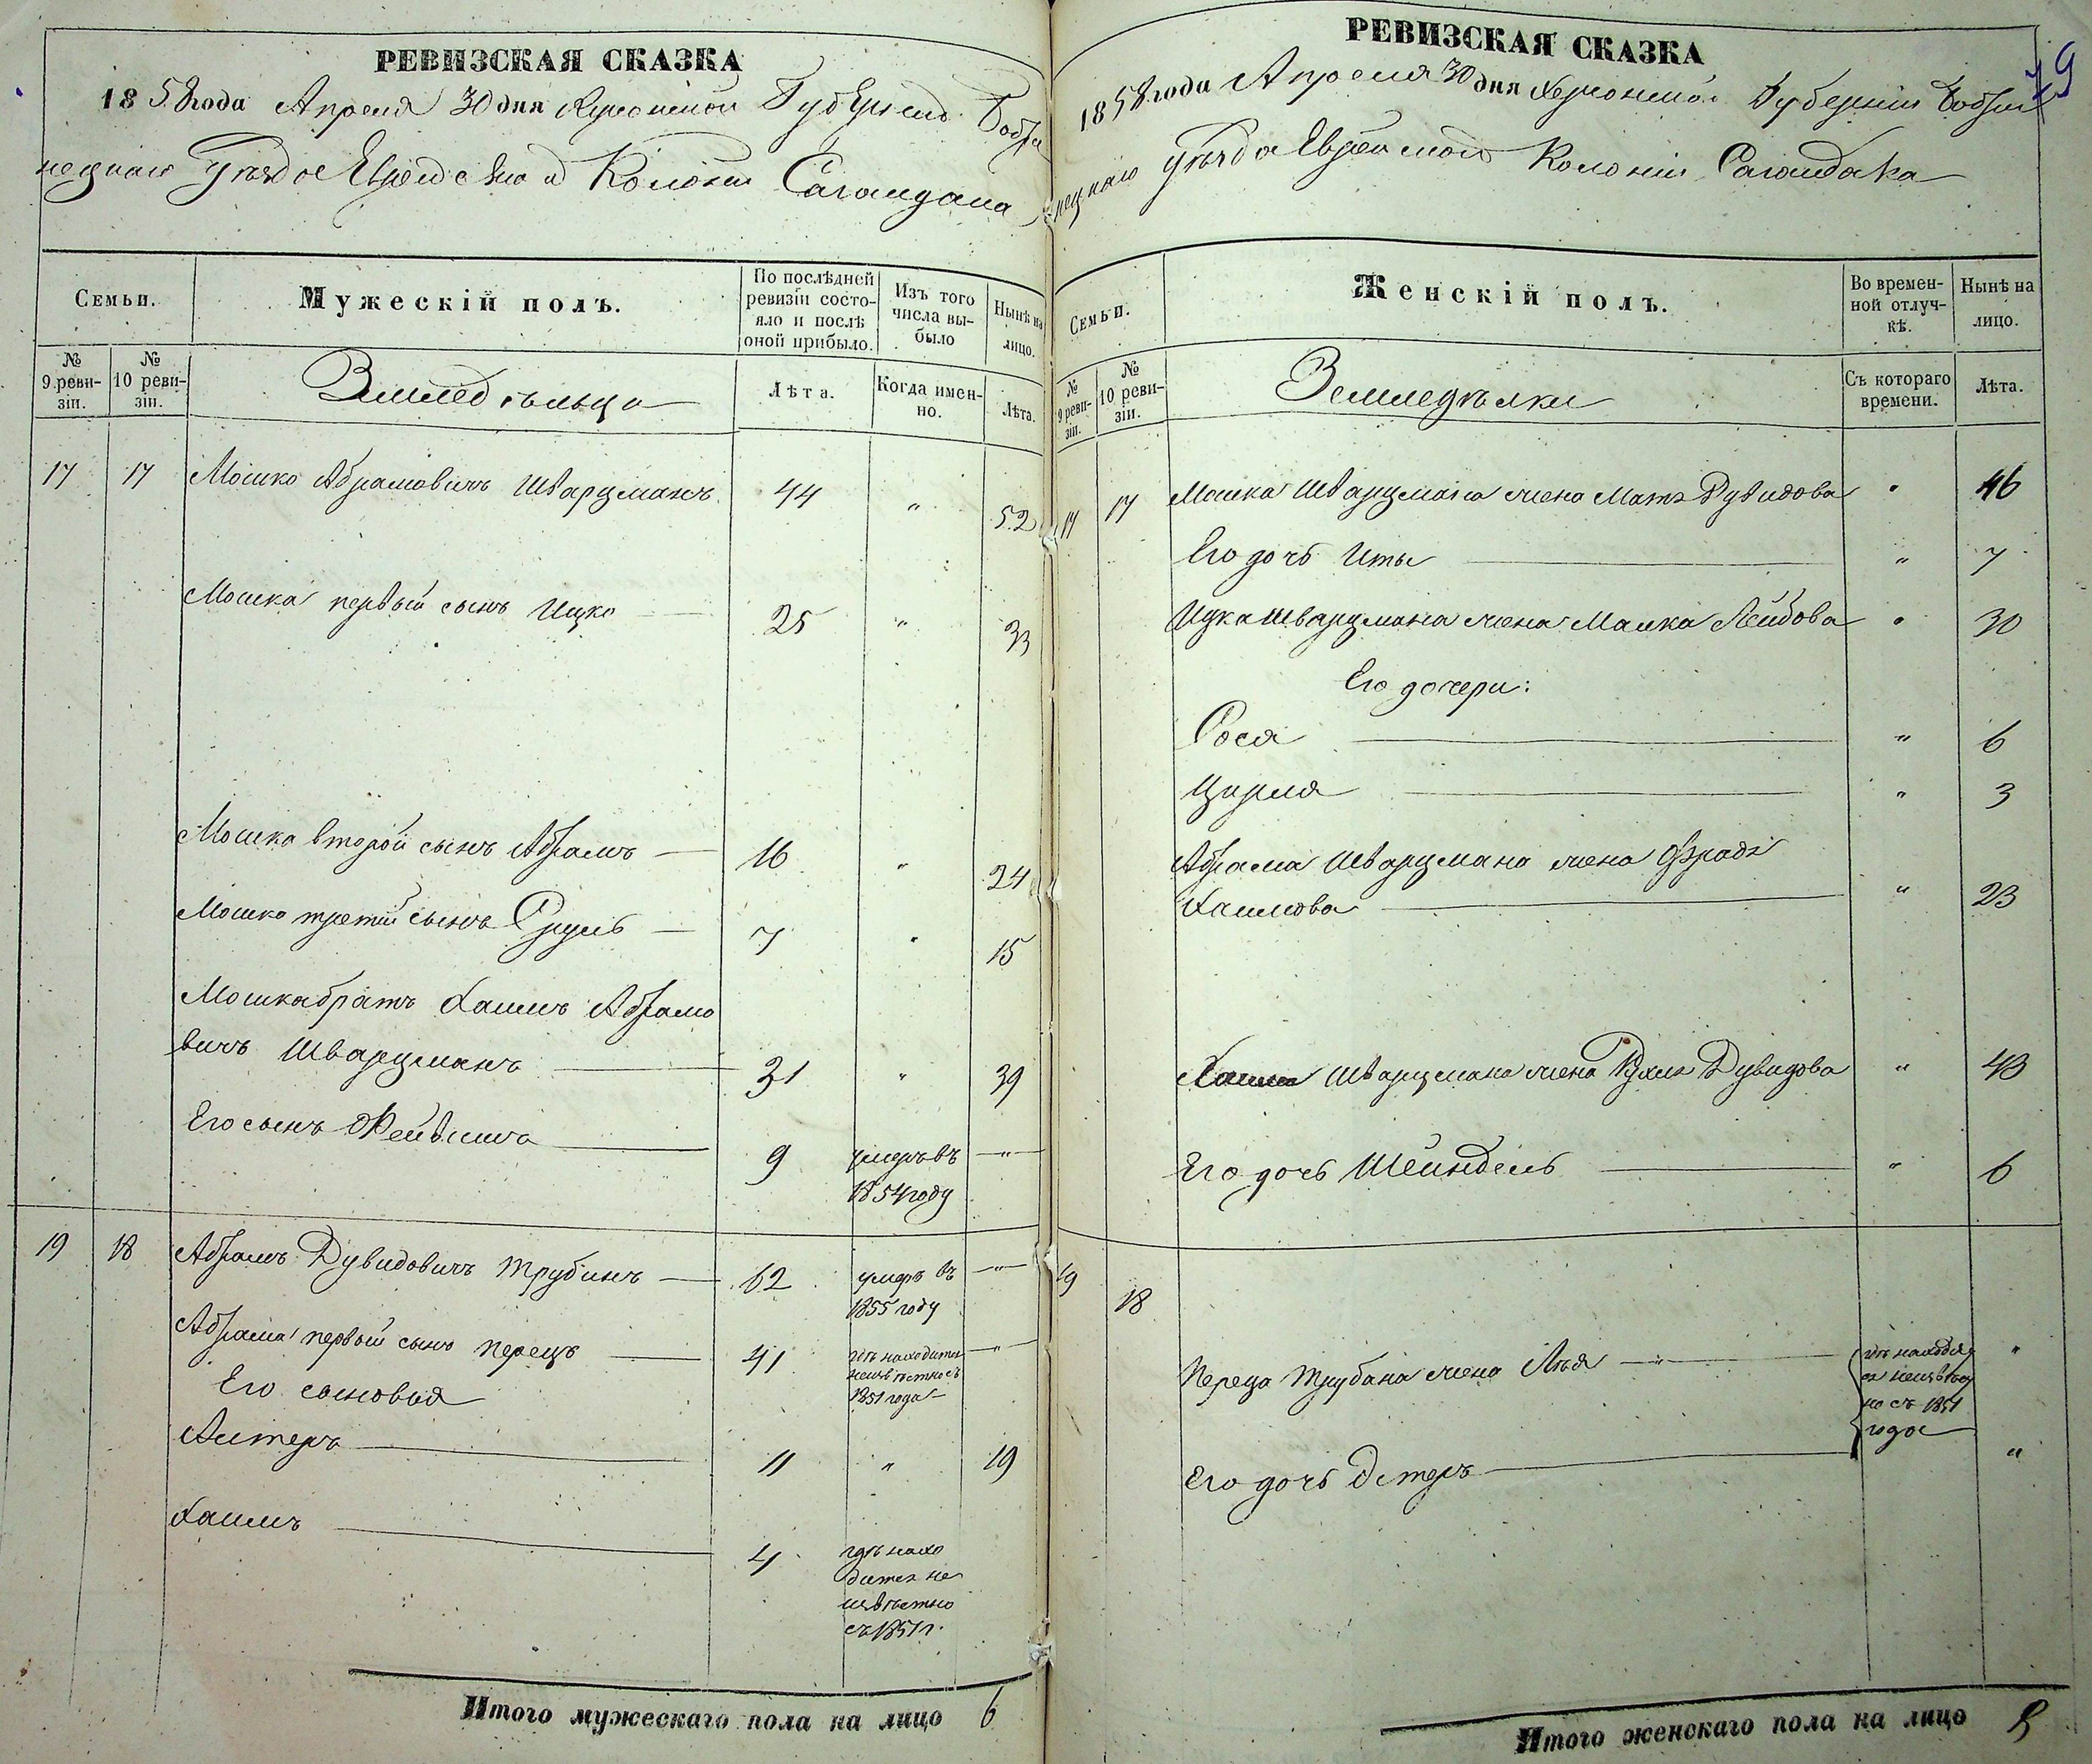 РЕВИЗСКАЯ СКАЗКА
1858 года Апреля 30 дня Херсонской Губернiи Бобри
нецкаго Уѣзда Еврейской Колонiи Сагайдака
Семьи.
Мужескiй полъ.
По послѣдней
ревизiи состо-
яло и послѣ
оной прибыло.
Изъ того
числа вы-
было
Нынѣ на
лицо.
№
9 реви-
зiи.
№
10 реви-
зiи.
Земледѣльцы
Лѣта.
Когда имен-
но.
Лѣта.
17 17 Мошко Абрамовичъ Шварцманъ 44 " 52
Мошка первый сынъ Ицко 25 " 33
Мошка второй сынъ Абрамъ 16 " 24
Мошко третiй сынъ Сруль 7 " 15
Мошка братъ Хаимъ Абрамо
вичъ Шварцманъ 31 " 39
Его сынъ Фейвишъ 9 умеръ въ "
1854 году
19 18 Абрамъ Дувидовичъ Трубинъ 62 умеръ въ "
1855 году
Абрама первый сынъ Перецъ 41 гдѣ находится "
неизвѣстно съ
1851 года
Его сыновья
Алтеръ 11 " 19
Хаимъ 4 гдѣ нахо
дится не
извѣстно
съ 1851 г.
Итого мужескаго пола на лицо 6
79
РЕВИЗСКАЯ СКАЗКА
1858 года Апреля 30 дня Херсонской Губернiи Бобри
нецкаго Уѣзда Еврейской Колонiи Сагайдака
Семьи.
Женскiй полъ.
Во времен-
ной отлуч-
кѣ.
Нынѣ на
лицо.
№
9 реви-
зiи.
№
10 реви-
зiи.
Земледѣлки
Съ котораго
времени.
Лѣта.
17 17 Мошка Шварцмана жена Матя Дувидова " 46
Его дочь Иты " 7
Ицка Шварцмана жена Малка Лейбова " 30
Его дочери:
Рося " 6
Цирля " 3
Абрама Шварцмана жена Фрадя
Хаимова " 23
Хаима Шварцмана жена Рухля Дувидова " 40
Его дочь Шейндель " 6
19 18
Переца Трубина жена Лея гдѣ находит "
ся неизвѣст
но съ 1851
года
Его дочь Эстеръ "
Итого женскаго пола на лицо